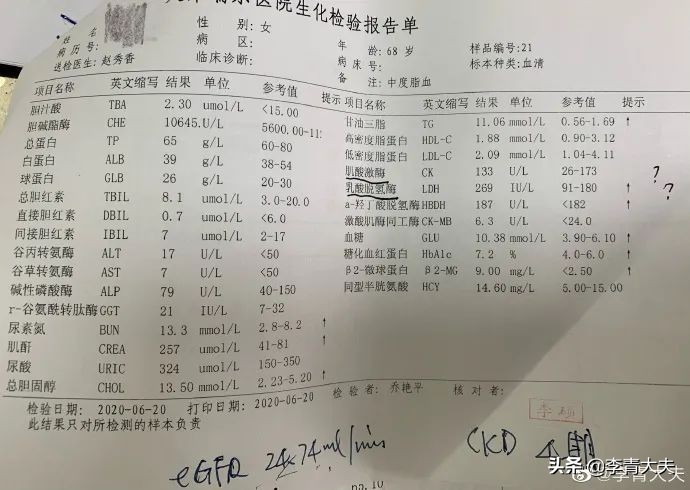 医院生化检验报告单
姓 名:
性 别: 女
年 龄: 68 岁
样品编号: 21
病历号:
病 区:
病 床 号:
标本种类: 血清
送检医生: 赵秀香
临床诊断:
备 注: 中度脂血
项目名称 英文缩写 结果 单位 参考值 提示 项目名称 英文缩写 结果 单位 参考值 提示
胆汁酸 TBA 2.30 umol/L <15.00
胆碱酯酶 CHE 10645. U/L 5600.00-11
总蛋白 TP 65 g/L 60-80
白蛋白 ALB 39 g/L 38-54
球蛋白 GLB 26 g/L 20-30
总胆红素 TBIL 8.1 umol/L 3.0-20.0
直接胆红素 DBIL 0.7 umol/L <6.0
间接胆红素 IBIL 7 umol/L 2-17
谷丙转氨酶 ALT 17 U/L <50
谷草转氨酶 AST 7 U/L <50
碱性磷酸酶 ALP 79 U/L 40-150
r-谷氨酰转肽酶 GGT 21 IU/L 7-32
尿素氮 BUN 13.3 mmol/L 2.8-8.2 ↑
肌酐 CREA 257 umol/L 41-81 ↑
尿酸 URIC 324 umol/L 150-350
总胆固醇 CHOL 13.50 mmol/L 2.23-5.20 ↑
甘油三脂 TG 11.06 mmol/L 0.56-1.69 ↑
高密度脂蛋白 HDL-C 1.88 mmol/L 0.90-3.12
低密度脂蛋白 LDL-C 2.09 mmol/L 1.04-4.11
肌酸激酶 CK 133 U/L 26-173 ?
乳酸脱氢酶 LDH 269 IU/L 91-180 ↑ ?
a-羟丁酸脱氢酶 HBDH 187 U/L <182 ↑
激酸肌酶同工酶 CK-MB 6.3 U/L <24.0
血糖 GLU 10.38 mmol/L 3.90-6.10 ↑
糖化血红蛋白 HbAlc 7.2 % 4.0-6.0 ↑
β2-微球蛋白 β2-MG 9.00 mg/L <2.50 ↑
同型半胱氨酸 HCY 14.60 mg/L 5.00-15.00
检 验 者: 乔艳平 核 对 者:
检验日期: 2020-06-20 打印日期: 2020-06-20
此结果只对所检测的样本负责
eGFR 24 ml/min
CKD 4期
头条 @李青大夫
@李青大夫